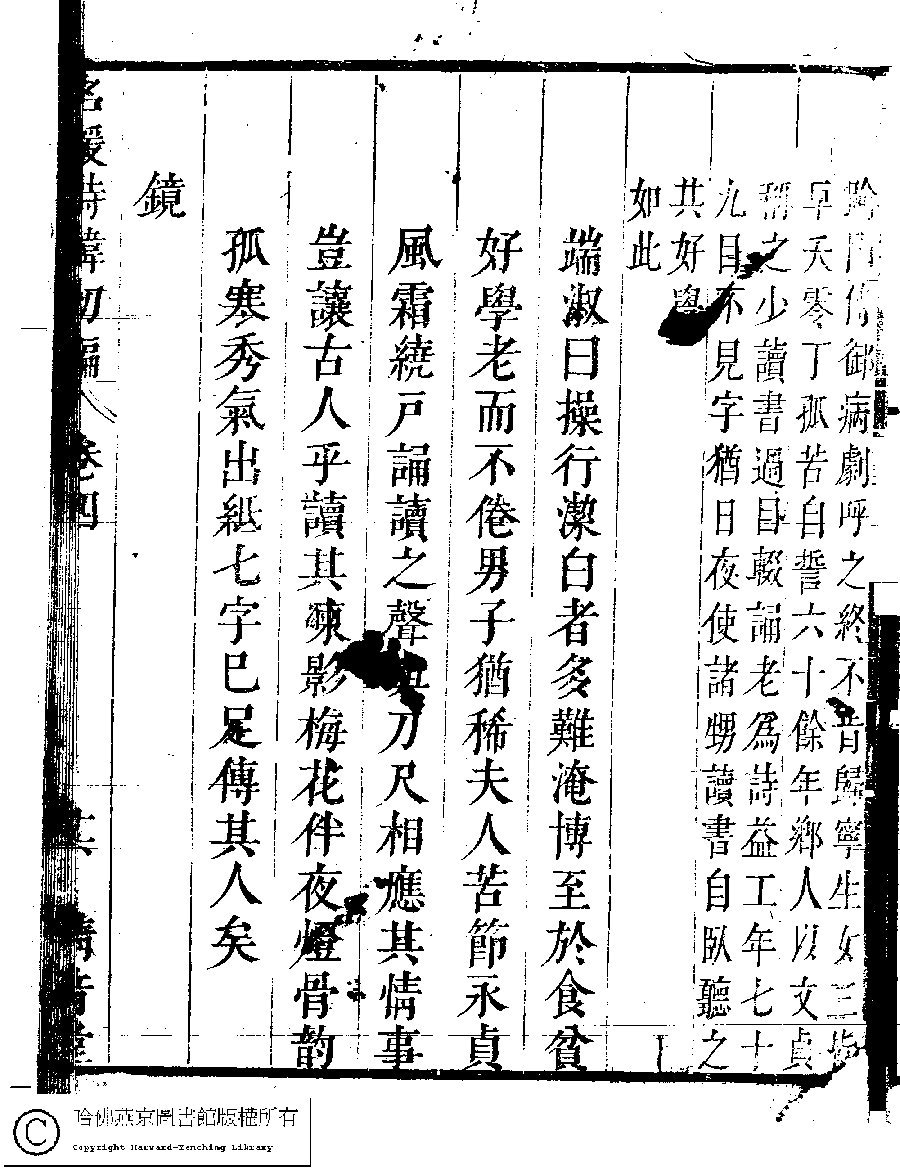 病劇呼之終不 歸寧生女三
夭零丁孤苦自誓六十餘年鄉人以文貞
稱之少讀書過目輟誦老為詩益工年七十
九目不見字猶日夜使諸甥讀書自臥聽之
其好學
如此
端淑曰操行潔白者多難淹博至於食貧
好學老而不倦男子猶稀夫人苦節永貞
風霜繞戸誦讀之聲與刀尺相應其情事
豈讓古人乎讀其 影梅花伴夜燈骨韵
孤寒秀氣出紙七字已足傳其人矣
鏡
名媛詩緯初編 卷四
清音堂
哈佛燕京圖書館版權所有
Copyright Harvard-Yenching Library